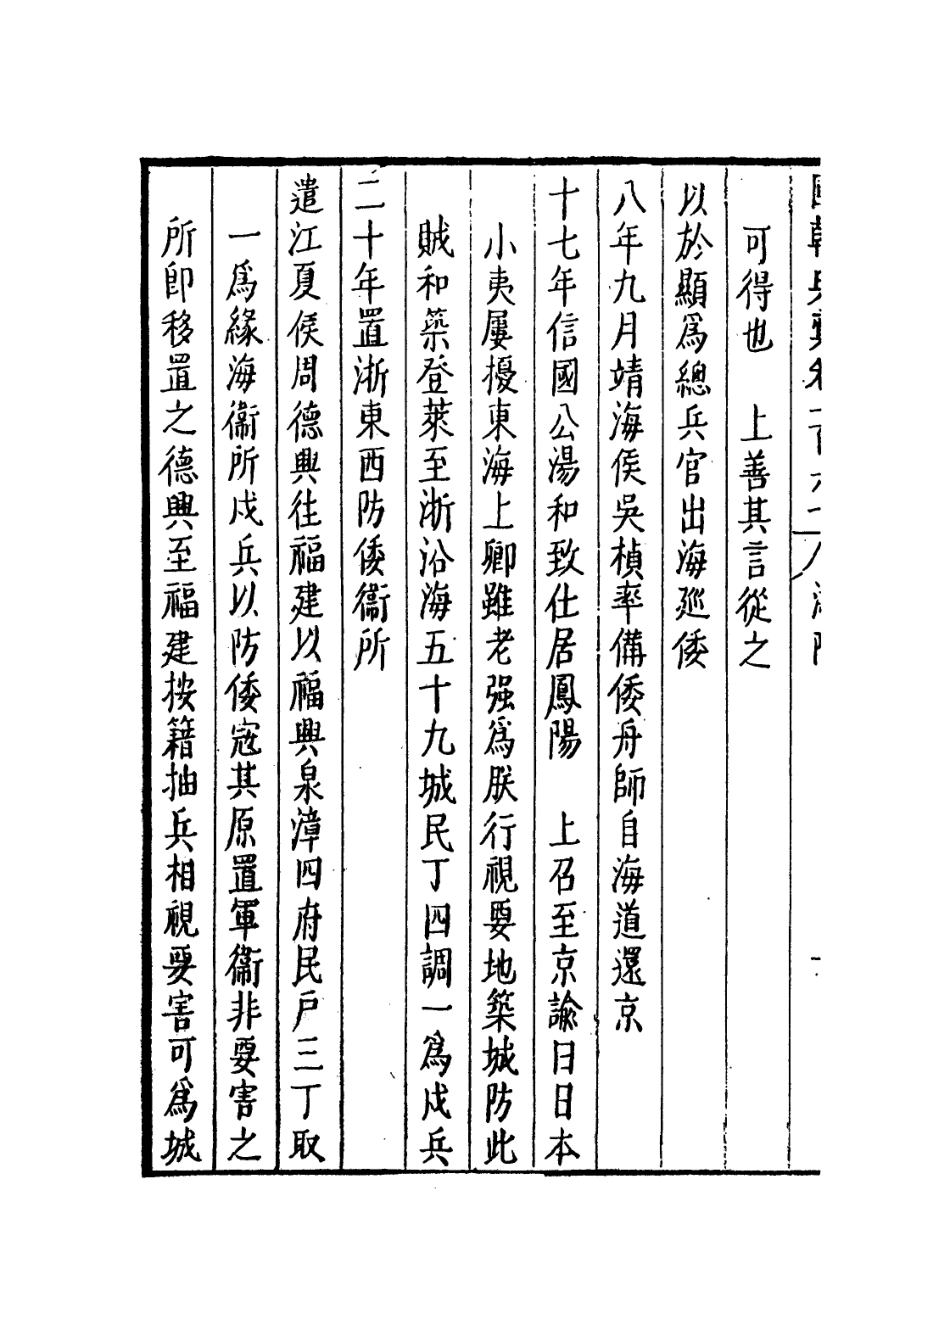 可得也　上善其言從之
以於顯爲總兵官出海廵倭
八年九月靖海侯吳楨率備倭舟師自海道還京
十七年信國公湯和致仕居鳳陽　上召至京諭曰日本
小夷屢擾東海上卿雖老强爲朕行視要地築城防此
賊和築登萊至浙沿海五十九城民丁四調一爲戍兵
二十年置浙東西防倭衞所
遣江夏侯周德興往福建以福興泉漳四府民户三丁取
一爲緣海衞所戍兵以防倭寇其原置軍衞非要害之
所卽移置之德興至福建按籍抽兵相視要害可爲城